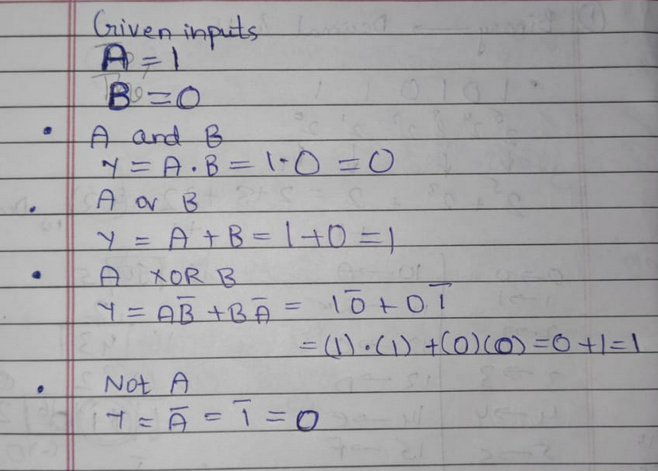 Given inputs
A = 1
B = 0
• A and B
Y = A . B = 1 . 0 = 0
• A or B
Y = A + B = 1 + 0 = 1
• A XOR B
Y = AB̅ + BA̅ = 10̅ + 01̅
= (1) . (1) + (0)(0) = 0 + 1 = 1
• Not A
Y = A̅ = 1̅ = 0